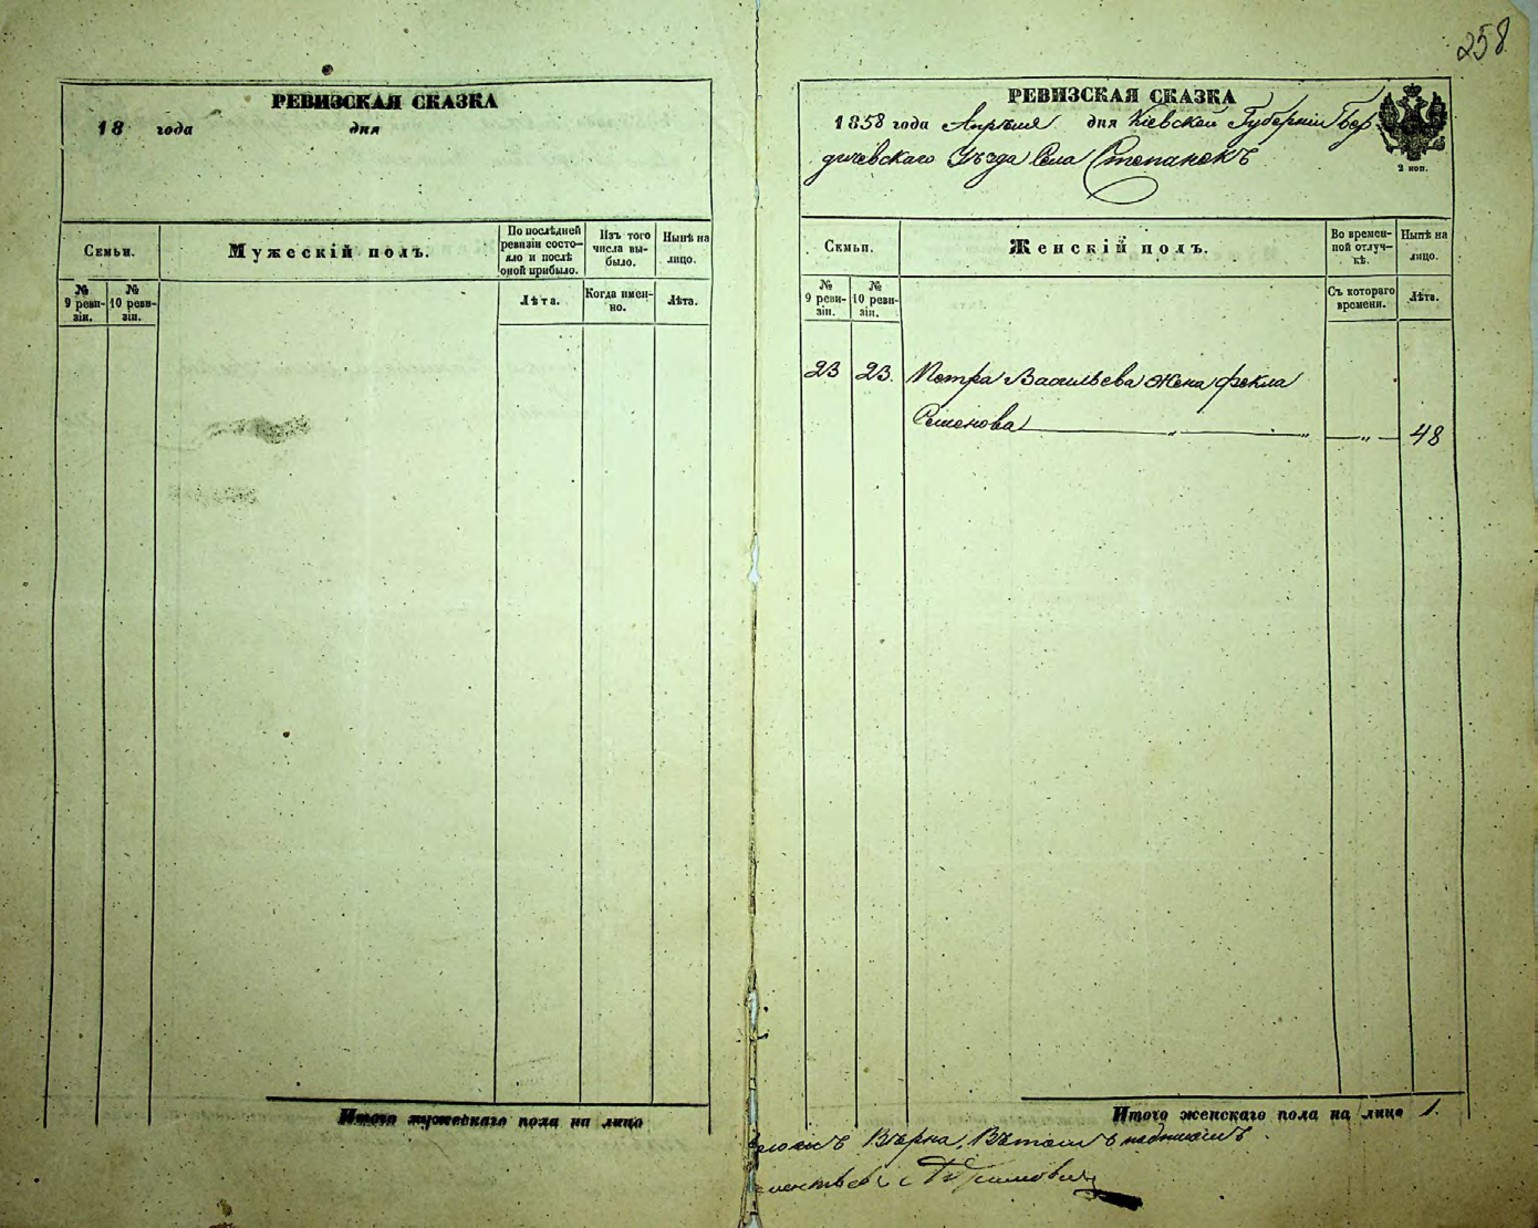 258
РЕВИЗСКАЯ СКАЗКА
18 года дня
Семьи.
Мужескій полъ.
По послѣдней ревизіи состо-
яло и послѣ оной прибыло.
Изъ того числа вы-
было.
Нынѣ на лицо.
№ 9 реви-
зіи.
№ 10 реви-
зіи.
Лѣта.
Когда имен-
но.
Лѣта.
Итого мужескаго пола на лицо
РЕВИЗСКАЯ СКАЗКА
1858 года Апрѣля дня Кіевской Губерніи Бер
дичевскаго Уѣзда Села Степанокъ
2 коп.
Семьи.
Женскій полъ.
Во времен-
ной отлуч-
кѣ.
Нынѣ на лицо.
№ 9 реви-
зіи.
№ 10 реви-
зіи.
Съ котораго времени.
Лѣта.
23 23. Петра Васильева жена Фекла
Семенова — „ — „ — „ — 48
Итого женскаго пола на лицо 1.
Вѣрна, Въ томъ подписомъ